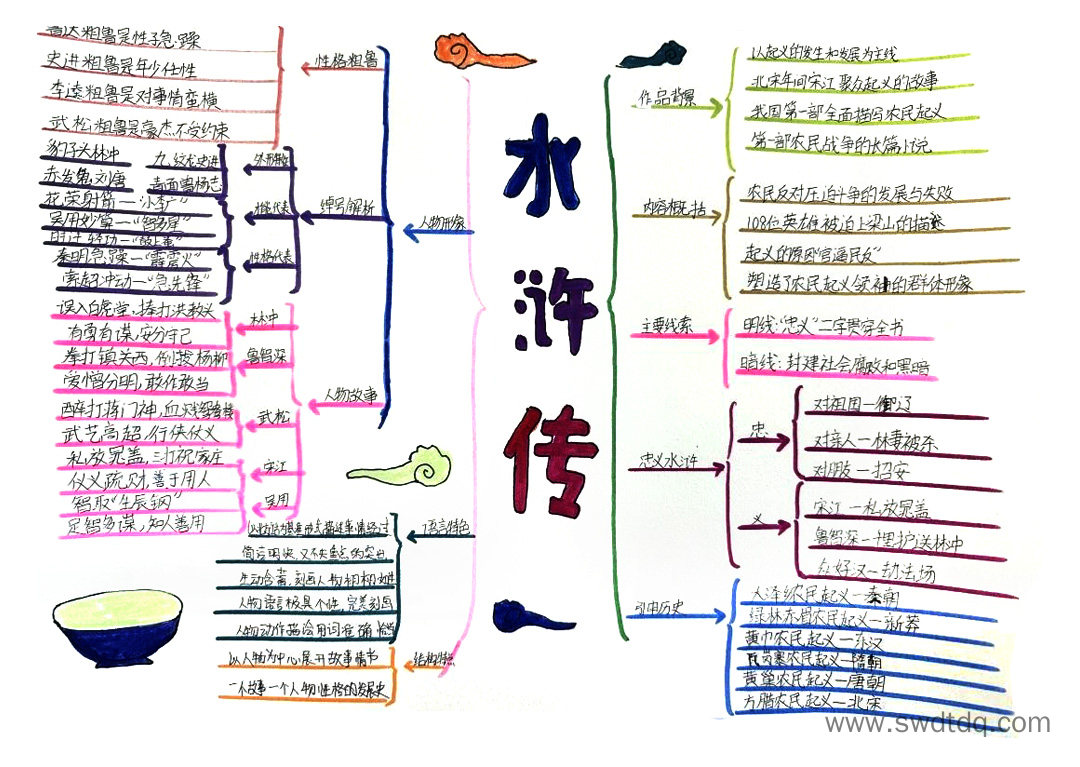 水浒传
人物形象
性格粗鲁
鲁达粗鲁是性子急躁
史进粗鲁是年少任性
李逵粗鲁是对事情蛮横
武松粗鲁是豪杰不受约束
绰号解析
豹子头林冲
九纹龙史进
赤发鬼刘唐
青面兽杨志
花荣射箭一"小李广"
吴用妙算一"智多星"
时迁轻功一"鼓上蚤"
性格代表
秦明急躁一"霹雳火"
索超冲动一"急先锋"
人物故事
林冲
误入白虎堂,棒打洪教头
有勇有谋,安分守己
鲁智深
拳打镇关西,倒拔杨柳
爱憎分明,敢作敢当
武松
醉打蒋门神,血溅鸳鸯楼
武艺高超,行侠仗义
宋江
私放晁盖,三打祝家庄
仗义疏财,善于用人
吴用
智取"生辰钢"
足智多谋,知人善用
语言特色
简洁明快,又不失重点的突出
生动含蓄,刻画人物栩栩如生
人物语言极具个性,完美刻画
人物动作描绘用词准确
结构特点
以人物为中心展开故事情节
一个故事一个人物性格的发展史
作品背景
以起义的发生和发展为主线
北宋年间宋江聚众起义的故事
我国第一部全面描写农民起义
第一部农民战争的长篇小说
内容概括
农民反对压迫斗争的发展与失败
108位英雄被迫上梁山的描述
起义的原因"官逼民反"
塑造了农民起义领袖的群体形象
主要线索
明线:"忠义"二字贯穿全书
暗线:封建社会腐败和黑暗
忠义水浒
忠
对祖国一御辽
对亲人一林妻被杀
对朋友一招安
义
宋江一私放晁盖
鲁智深一护送林冲
众好汉一劫法场
引申历史
大泽乡农民起义一秦朝
绿林赤眉农民起义一新莽
黄巾农民起义一东汉
瓦岗寨农民起义一隋朝
黄巢农民起义一唐朝
方腊农民起义一北宋
www.swdtdq.com